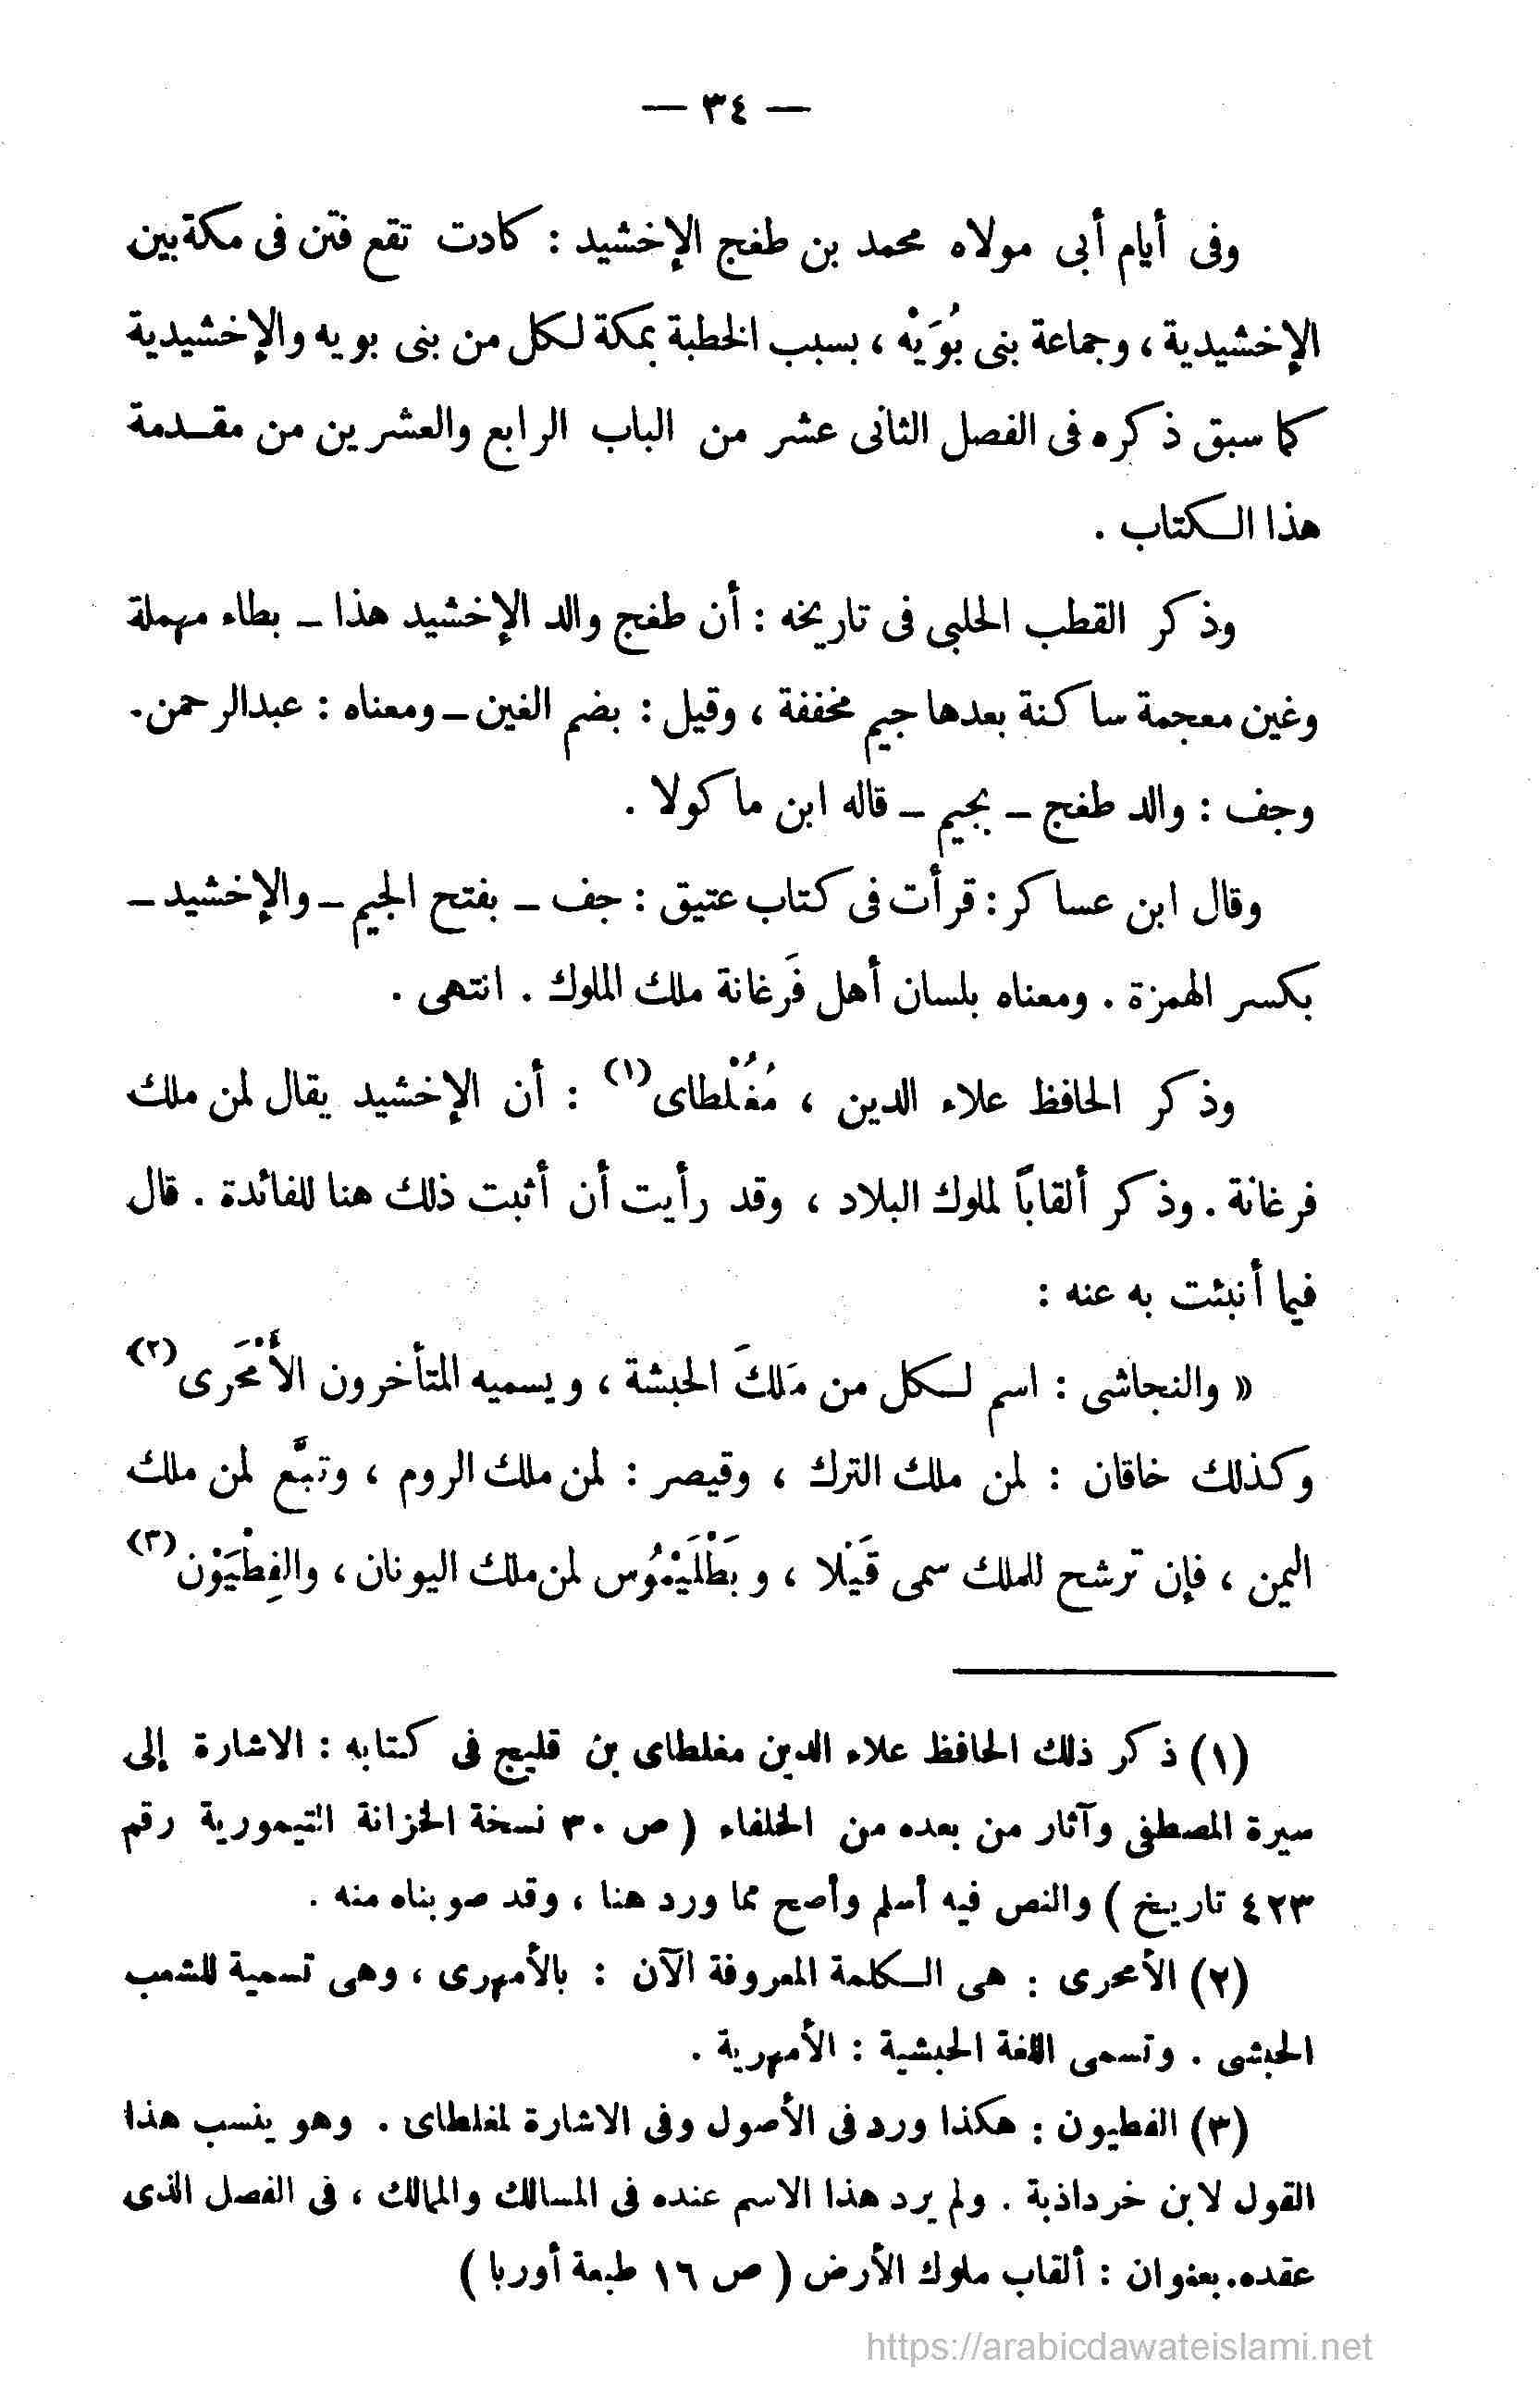 — ٣٤ —
وفى أيام أبى مولاه محمد بن طغج الإخشيد : كادت تقع فتن فى مكة بين
الإخشيدية ، وجماعة بنى بُوَيْه ، بسبب الخطبة بمكة لكل من بنى بويه والإخشيدية
كما سبق ذكره فى الفصل الثانى عشر من الباب الرابع والعشرين من مقدمة
هذا الكتاب .
وذكر القطب الحلبى فى تاريخه : أن طغج والد الإخشيد هذا – بطاء مهملة
وغين معجمة ساكنة بعدها جيم مخففة ، وقيل : بضم الغين – ومعناه : عبدالرحمن .
وجف : والد طغج – بجيم – قاله ابن ماكولا .
وقال ابن عساكر : قرأت فى كتاب عتيق : جف – بفتح الجيم – والإخشيد –
بكسر الهمزة . ومعناه بلسان أهل فَرغانة ملك الملوك . انتهى .
وذكر الحافظ علاء الدين ، مُغُلْطاى(١) : أن الإخشيد يقال لمن ملك
فرغانة . وذكر ألقاباً لملوك البلاد ، وقد رأيت أن أثبت ذلك هنا للفائدة . قال
فيما أنبئت به عنه :
« والنجاشى : اسم لكل من مَلكَ الحبشة ، ويسميه المتأخرون الأَمْحَرى(٢)
وكذلك خاقان : لمن ملك الترك ، وقيصر : لمن ملك الروم ، وتبَّع لمن ملك
اليمن ، فإن ترشح للملك سمى قَيْلا ، وبَطْلَيْمُوس لمن ملك اليونان ، والفِطْيَوْن(٣)
(١) ذكر ذلك الحافظ علاء الدين مغلطاى بن قليج فى كتابه : الاشارة إلى
سيرة المصطفى وآثار من بعده من الخلفاء ( ص ٣٠ نسخة الخزانة التيمورية رقم
٤٢٣ تاريخ ) والنص فيه أسلم وأصح مما ورد هنا ، وقد صوبناه منه .
(٢) الأمحرى : هى الكلمة المعروفة الآن : بالأمهرى ، وهى تسمية للشعب
الحبشى . وتسمى اللغة الحبشية : الأمهرية .
(٣) الفطيون : هكذا ورد فى الأصول وفى الاشارة لمغلطاى . وهو ينسب هذا
القول لابن خرداذبة . ولم يرد هذا الاسم عنده فى المسالك والممالك ، فى الفصل الذى
عقده . بعنوان : ألقاب ملوك الأرض ( ص ١٦ طبعة أوربا )
https://arabicdawateislami.net